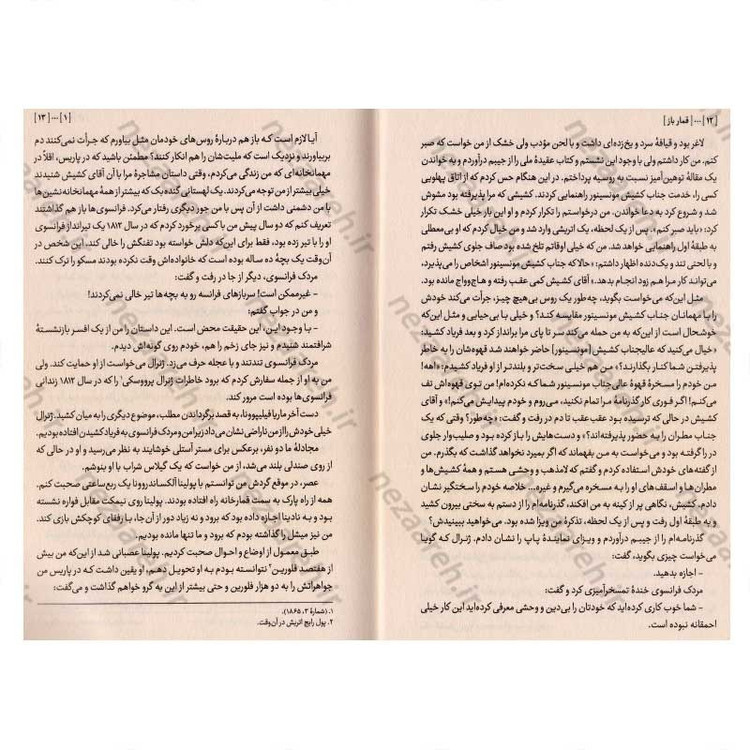 [۱۲] ... [قمار باز]
لاغر بود و قیافهٔ سرد و یخ‌زده‌ای داشت و با لحن مؤدب ولی خشک از من خواست که صبر
کنم. من کار داشتم ولی با وجود این نشستم و کتاب عقیدهٔ ملی را از جیبم درآوردم و به خواندن
یک مقالهٔ توهین‌آمیز نسبت به روسیه پرداختم. در این هنگام حس کردم که از اتاق پهلویی
کسی را، خدمت جناب کشیش مونسینیور راهنمایی کردند. کشیشی که مرا پذیرفته بود مشوش
شد و شروع کرد به دعا خواندن. من درخواستم را تکرار کردم و او این بار خیلی خشک تکرار
کرد: «باید صبر کنم». پس از یک لحظه، یک اتریشی وارد شد و من خیال کردم که او بی‌معطلی
به طبقهٔ اول راهنمایی خواهد شد. من که خیلی اوقاتم تلخ شده بود صاف جلوی کشیش رفتم
و با لحنی تند و یک‌دنده اظهار داشتم: «حالا که جناب کشیش مونسینور اشخاص را می‌پذیرد،
می‌تواند کار مرا هم زود انجام بدهد.» آقای کشیش کمی عقب رفته و هاج‌وواج مانده بود.
مثل این‌که می‌خواست بگوید، چه‌طور یک روس بی‌هیچ چیز، جرأت می‌کند خودش
را با مهمانان جناب کشیش مونسینور مقایسه کند؟ و خیلی با بی‌حیایی و مثل این‌که
خوشحال است از این‌که به من حمله می‌کند سر تا پای مرا برانداز کرد و بعد فریاد کشید:
«خیال می‌کنید که عالیجناب کشیش [مونسینور] حاضر خواهند شد قهوه‌شان را به خاطر
پذیرفتن شما کنار بگذارند؟» من هم خیلی سخت‌تر و بلندتر از او فریاد کشیدم: «اهه!
من خودم را مسخرهٔ قهوهٔ عالی‌جناب مونسینور شما که نکرده‌ام! من توی قهوه‌اش تف
می‌کنم! اگر فوری کار گذرنامهٔ مرا تمام نکنید، می‌روم و خودم پیدایش می‌کنم!» و آقای
کشیش در حالی که ترسیده بود عقب عقب تا دم در رفت و گفت: «چه‌طور؟ وقتی که یک
جناب مطران را به حضور پذیرفته‌اند؟» و دست‌هایش را باز کرده بود و صلیب‌وار جلوی
در را گرفته بود و می‌خواست به من بفهماند که اگر بمیرد نخواهد گذاشت که بگذرم. من
از گفته‌های خودش استفاده کردم و گفتم که لامذهب و وحشی هستم و همهٔ کشیش‌ها و
مطران‌ها و اسقف‌های او را به مسخره می‌گیرم و غیره... خلاصه خودم را سختگیر نشان
دادم. کشیش، نگاهی پر از کینه به من افکند، گذرنامه‌ام را از دستم به سختی بیرون کشید
و به طبقهٔ اول رفت و پس از یک لحظه، تذکرهٔ من ویزا شده بود. می‌خواهید ببینیدش؟
گذرنامه‌ام را از جیبم درآوردم و ویزای نمایندهٔ پاپ را نشان دادم. ژنرال که گویا
می‌خواست چیزی بگوید، گفت:
- اجازه بدهید.
مردک فرانسوی خندهٔ تمسخرآمیزی کرد و گفت:
- شما خوب کاری کرده‌اید که خودتان را بی‌دین و وحشی معرفی کرده‌اید این کار خیلی
احمقانه نبوده است.
[۱] ... [۱۳]
آیا لازم است که باز هم دربارهٔ روس‌های خودمان مثل بیاورم که جرأت نمی‌کنند دم
بربیاورند و نزدیک است که ملیت‌شان را هم انکار کنند؟ مطمئن باشید که در پاریس، اقلاً در
مهمانخانه‌ای که من زندگی می‌کردم، وقتی داستان مشاجرهٔ مرا با آن آقای کشیش شنیدند
خیلی بیشتر از من توجه می‌کردند. یک لهستانی گنده بک که بیشتر از همهٔ مهمانخانه‌نشین‌ها
با من دشمنی داشت از آن پس با من جور دیگری رفتار می‌کرد. فرانسوی‌ها باز هم گذاشتند
تعریف کنم که دو سال پیش من با کسی برخورد کردم که در سال ۱۸۱۲ یک تیرانداز فرانسوی
او را با تیر زده بود، فقط برای این‌که دلش خواسته بود تفنگش را خالی کند. این شخص در
آن‌وقت یک بچهٔ ده ساله بوده است که خانواده‌اش وقت نکرده بودند مسکو را ترک کنند.
مردک فرانسوی، دیگر از جا در رفت و گفت:
- غیرممکن است! سربازهای فرانسه رو به بچه‌ها تیر خالی نمی‌کردند!
و من در جواب گفتم:
- با وجود این، این حقیقت محض است. این داستان را من از یک افسر بازنشستهٔ
شرافتمند شنیدم و نیز جای زخم را هم، خودم روی گونه‌اش دیدم.
مردک فرانسوی تندتند و با عجله حرف می‌زد. ژنرال می‌خواست از او حمایت کند. ولی
من به او از جمله سفارش کردم که برود خاطرات ژنرال پرووسکی¹ را که در سال ۱۸۱۲ زندانی
فرانسوی‌ها بوده است مرور کند.
دست آخر ماریا فیلیپوونا، به قصد برگرداندن مطلب، موضوع دیگری را به میان کشید. ژنرال
خیلی خودش را از من ناراضی نشان می‌داد زیرا من و مردک فرانسوی به فریاد کشیدن افتاده بودیم.
مجادلهٔ ما دو نفر، برعکس برای مستر آستلی خوشایند به نظر می‌رسید و او در حالی که
از روی صندلی بلند می‌شد، از من خواست که یک گیلاس شراب با او بنوشم.
عصر، در موقع گردش من توانستم با پولینا آلکساندروونا یک ربع‌ساعتی صحبت کنم.
همه از راه پارک به سمت قمارخانه راه افتاده بودند. پولینا روی نیمکت مقابل فواره نشسته
بود و به نادینا اجازه داده بود که برود و نه زیاد دور از آن جا، با رفقای کوچکش بازی کند.
من نیز میشل را گذاشته بودم که برود و ما تنها مانده بودیم.
طبق معمول از اوضاع و احوال صحبت کردیم. پولینا عصبانی شد از این‌که من بیش
از هفتصد فلورین² نتوانسته بودم به او تحویل دهم، او یقین داشت که در پاریس من
جواهراتش را به دو هزار فلورین و حتی بیشتر از این به گرو خواهم گذاشت و می‌گفت:
۱. (شمارهٔ ۳، ۱۸۶۵).
۲. پول رایج اتریش در آن‌وقت.
nezaakeh.ir